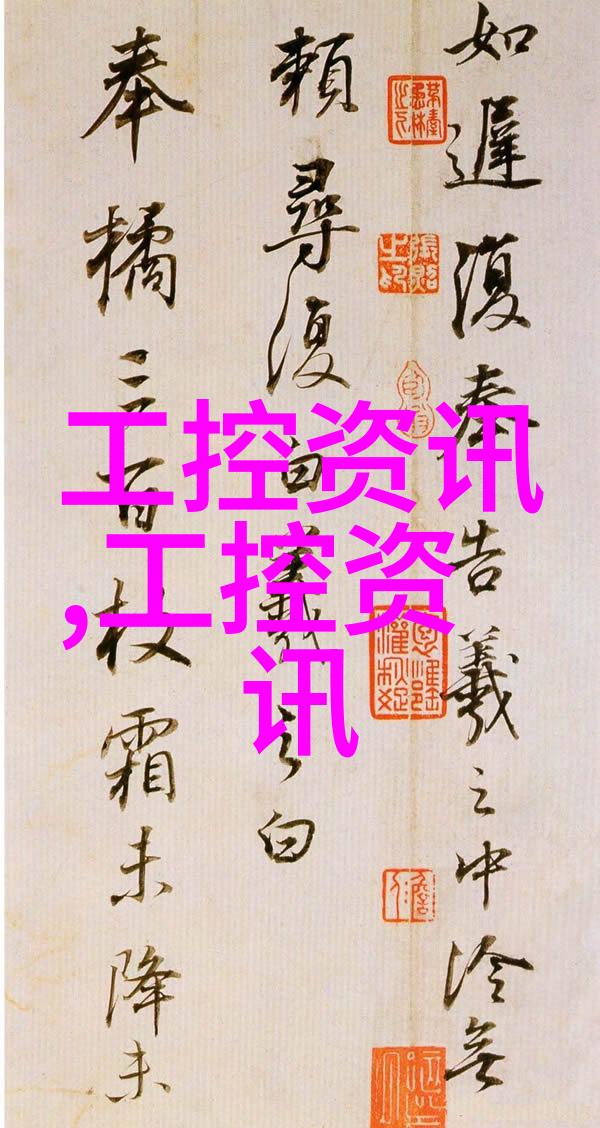 如遲復奉告羲之中冷無
賴尋復白羲之白
奉橘三百枚霜未降未
工控资讯
,工控资
讯